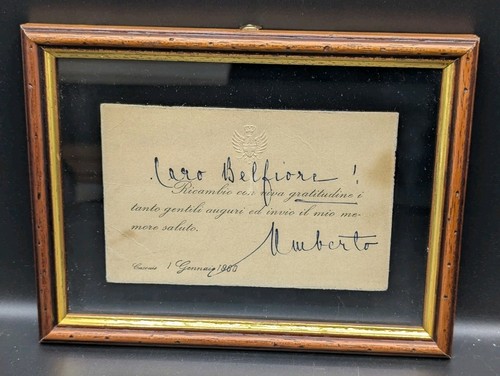 Caro Belfiore !
Ricambio con viva gratitudine i
tanto gentili auguri ed invio il mio me-
more saluto.
Umberto
Cascais 1 Gennaio 1960